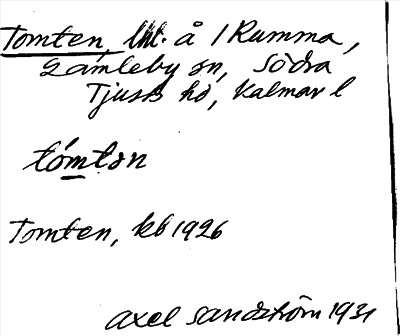 Tomten, lht. å 1 Rumma,
Gamleby sn, Södra
Tjusts hd, Kalmar l
tómtən
Tomten, kb 1926
Axel Sandström 1931